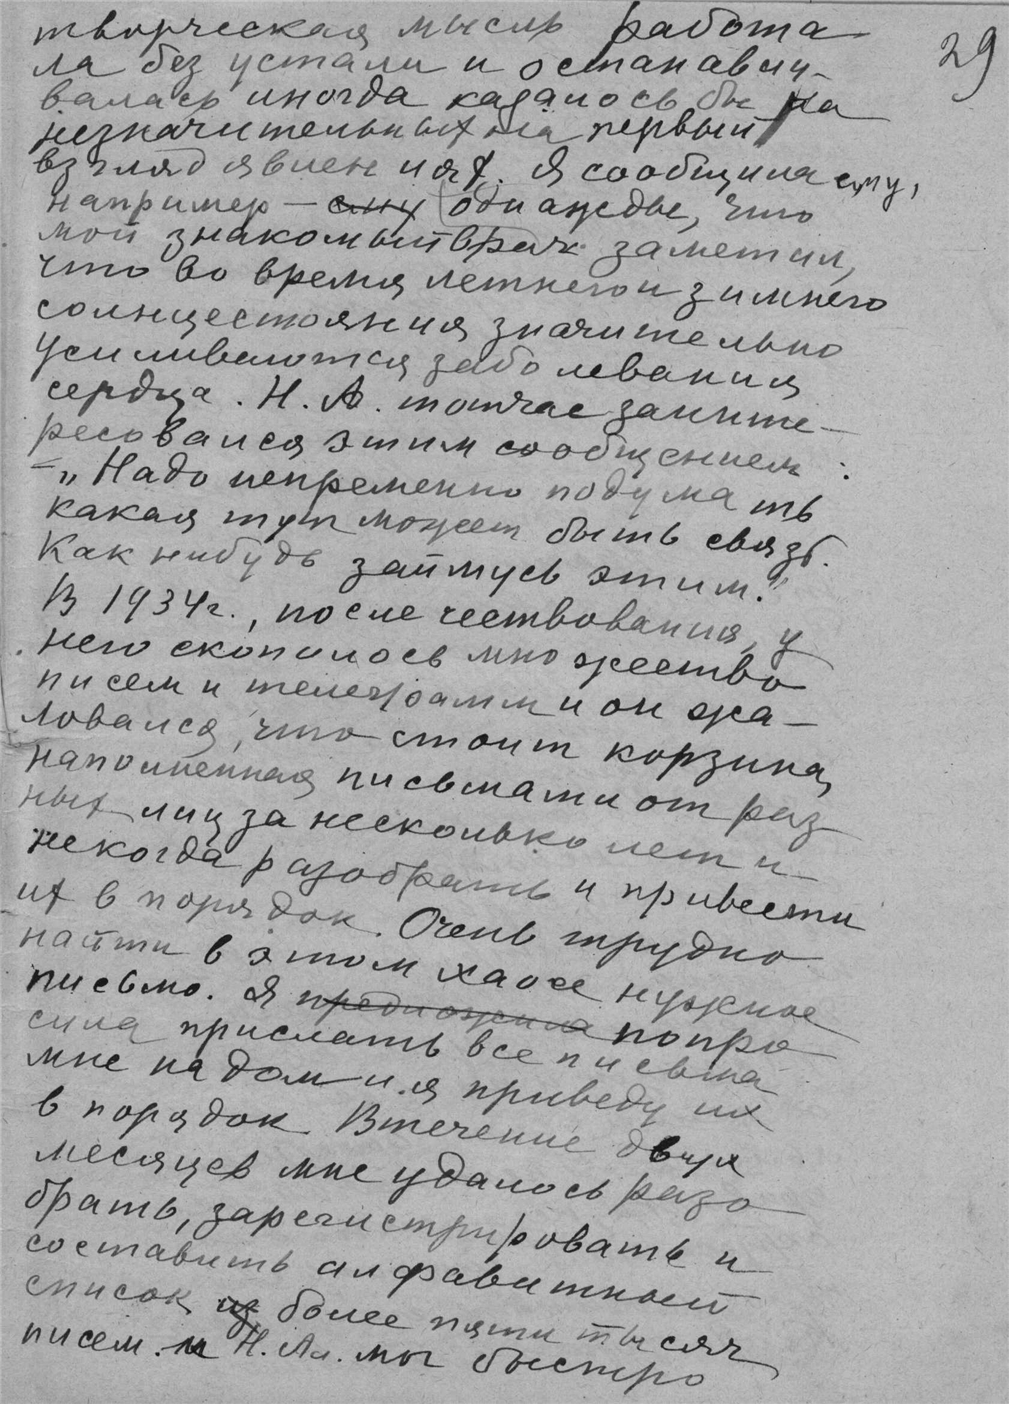 29
творческая мысль работа
ла без устали и останавли-
валась иногда казалось бы на
незначительных на первый
взгляд явлениях. Я сообщила ему,
например — ему однажды, что
мой знакомый врач заметил,
что во время летнего и зимнего
солнцестояния значительно
усиливаются заболевания
сердца. Н. А. тотчас заинте-
ресовался этим сообщением:
- „Надо непременно подумать
какая тут может быть связь.
Как нибудь займусь этим."
В 1934г., после чествования, у
него скопилось множество
писем и телеграмм и он жа-
ловался, что стоит корзина,
наполненная письмами от раз
ных лиц за несколько лет и
некогда разобрать и привести
их в порядок. Очень трудно
найти в этом хаосе нужное
письмо. Я предложила попро
сила прислать все письма
мне на дом и я приведу их
в порядок. Втечение двух
месяцев мне удалось разо
брать, зарегистрировать и
составить алфавитный
список из более пяти тысяч
писем. и Н. Ал. мог быстро